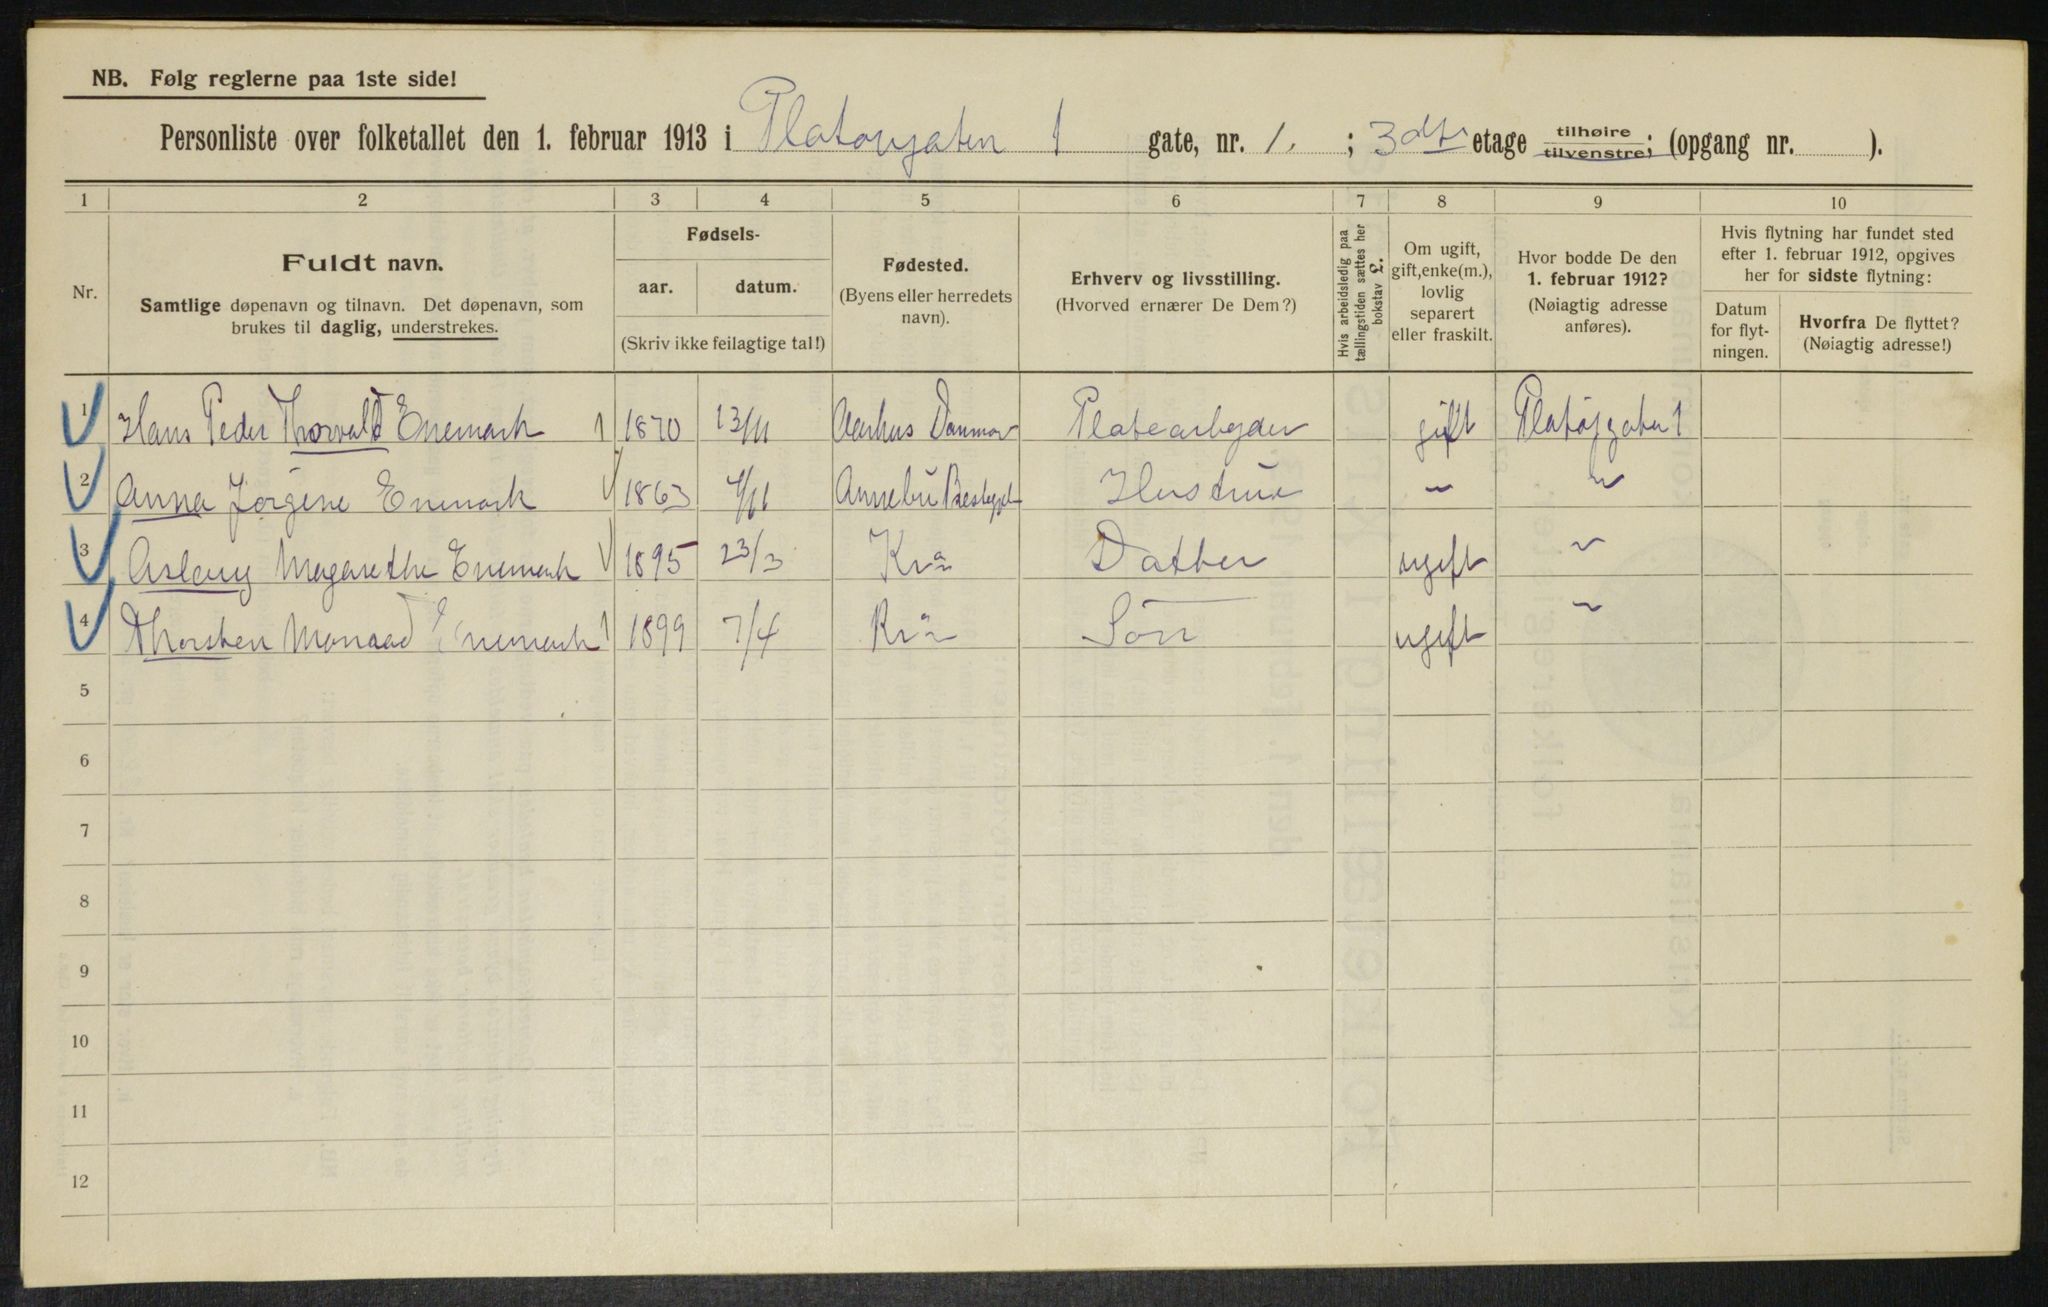 NB. Følg reglerne paa 1ste side!
Personliste over folketallet den 1. februar 1913 i Platousgaten 1 gate, nr. 1. ; 3dje etage tilhøire tilvenstre; (opgang nr. ).
1 2 3 4 5 6 7 8 9 10
Nr.
Fuldt navn.
Samtlige døpenavn og tilnavn. Det døpenavn, som
brukes til daglig, understrekes.
Fødsels-
aar. datum.
(Skriv ikke feilagtige tal!)
Fødested.
(Byens eller herredets
navn).
Erhverv og livsstilling.
(Hvorved ernærer De Dem?)
Hvis arbeidsledig paa
tællingstiden sættes her
bokstav L.
Om ugift,
gift, enke(m.),
lovlig
separert
eller fraskilt.
Hvor bodde De den
1. februar 1912?
(Nøiagtig adresse
anføres).
Hvis flytning har fundet sted
efter 1. februar 1912, opgives
her for sidste flytning:
Datum
for flyt-
ningen.
Hvorfra De flyttet?
(Nøiagtig adresse!)
1 Hans Peder Thorvald Enemark 1870 13/11 Aarhus Danmar Platearbeyder gift Platousgaten 1
2 Anna Jørgene Enemark 1863 4/11 Annebu Hustrue " "
3 Aslaug Magarethe Enemark 1895 23/3 Kr.a Datter ugift "
4 Thorsten Monrad Enemark 1899 7/4 Kr.a Sön ugift "
5
6
7
8
9
10
11
12